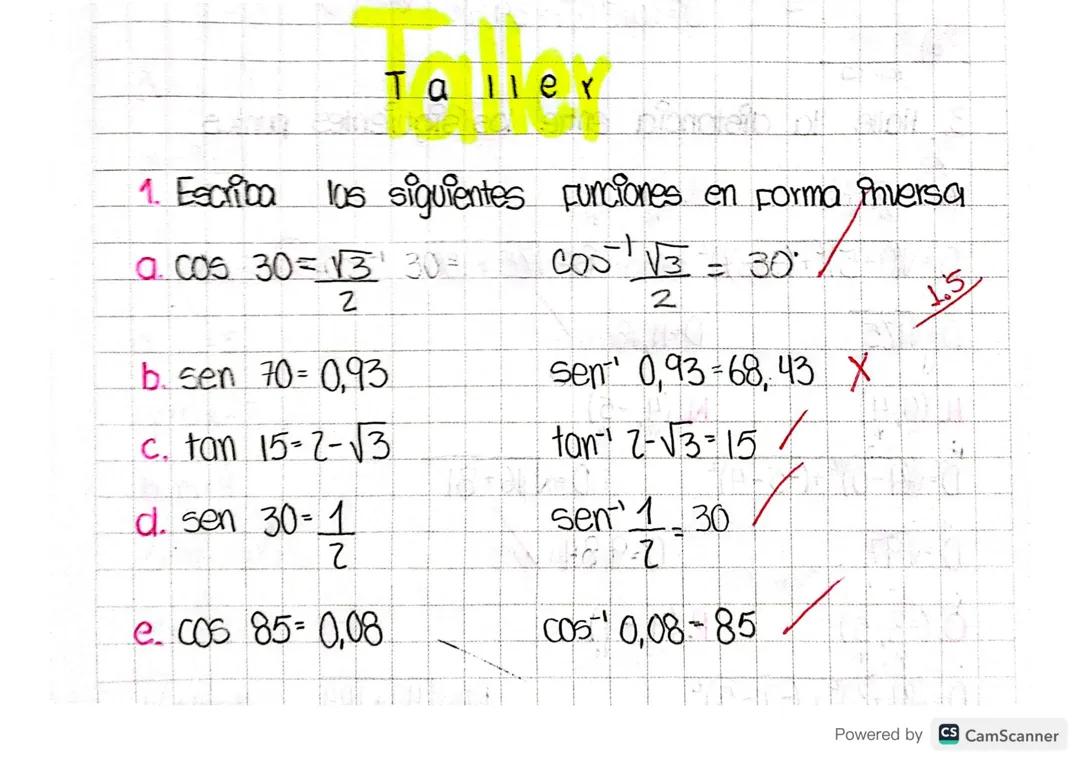 Taller
Taller
1. Escriba las siguientes funciones en forma inversa
a. cos 30 = √3/2 cos⁻¹ √3/2 = 30°
1.5
b. sen 70 = 0,93 sen⁻¹ 0,93 = 68,43 X
c. tan 15 = 2-√3 tan⁻¹ 2-√3 = 15
d. sen 30 = 1/2 sen⁻¹ 1/2 = 30
e. cos 85 = 0,08 cos⁻¹ 0,08 = 85
Powered by CS CamScanner